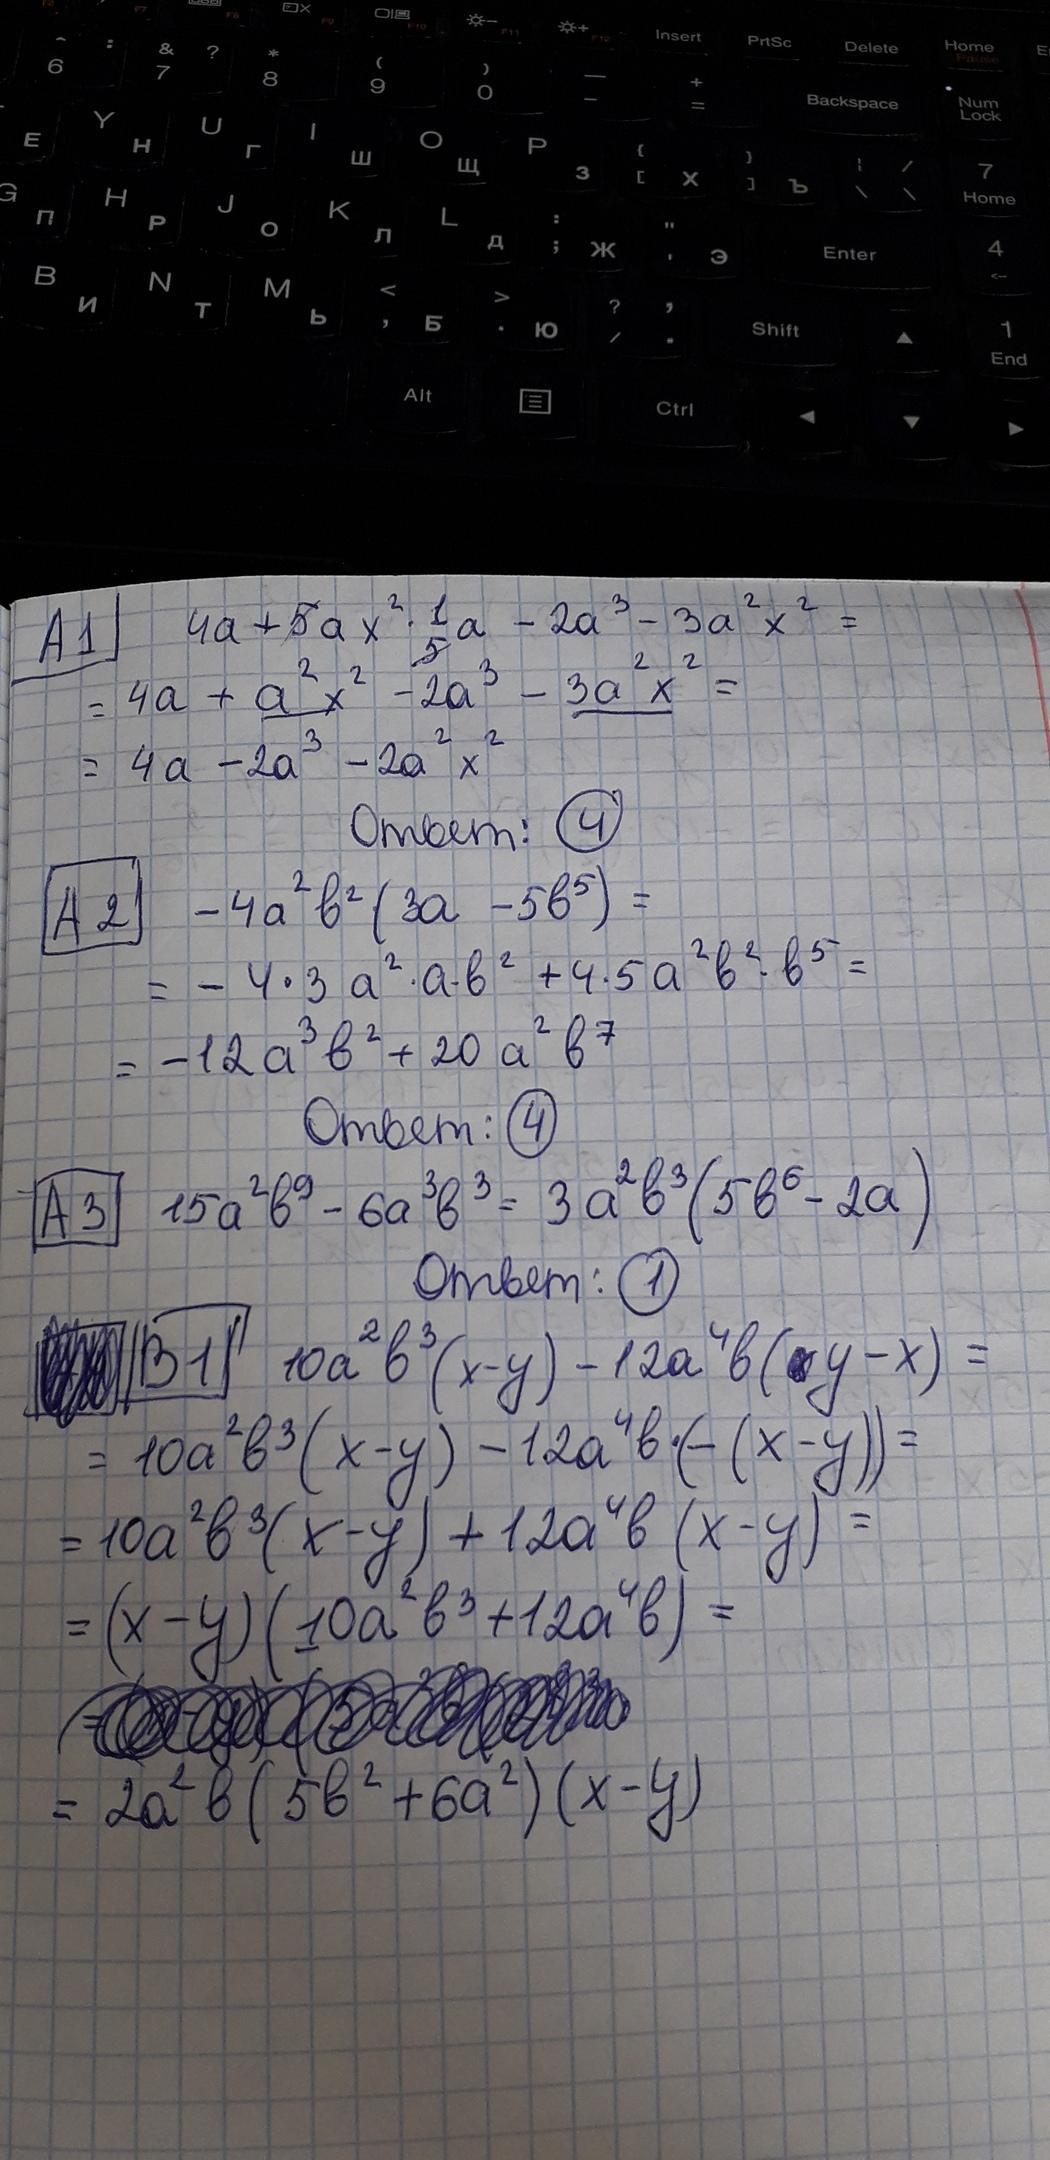 F10 F11 F12 Insert PrtSc Delete Home Pause
^ 6 : & 7 ? * 8 ( 9 ) 0 — - + = Backspace Num Lock
Е Y Н U Г I Ш O Щ P З { [ Х } ] Ъ ¦ \ / \ 7 Home
G П H Р J О K Л L Д : ; Ж " ' Э Enter 4 ←
B И N Т M Ь < , Б > . Ю ? / , . Shift ▲ 1 End
Alt Ctrl ◄ ▼ ►
А1 4a + 5ax² · 1/5 a - 2a³ - 3a²x² =
= 4a + a²x² - 2a³ - 3a²x² =
= 4a - 2a³ - 2a²x²
Ответ: 4
А2 -4a²b²(3a - 5b⁵) =
= -4·3a²·a·b² + 4·5a²b²·b⁵ =
= -12a³b² + 20a²b⁷
Ответ: 4
А3 15a²b⁹ - 6a³b³ = 3a²b³(5b⁶ - 2a)
Ответ: 1
В1 10a²b³(x-y) - 12a⁴b(y-x) =
= 10a²b³(x-y) - 12a⁴b·(-(x-y)) =
= 10a²b³(x-y) + 12a⁴b(x-y) =
= (x-y)(10a²b³ + 12a⁴b) =
= 2a²b(5b² + 6a²)(x-y)